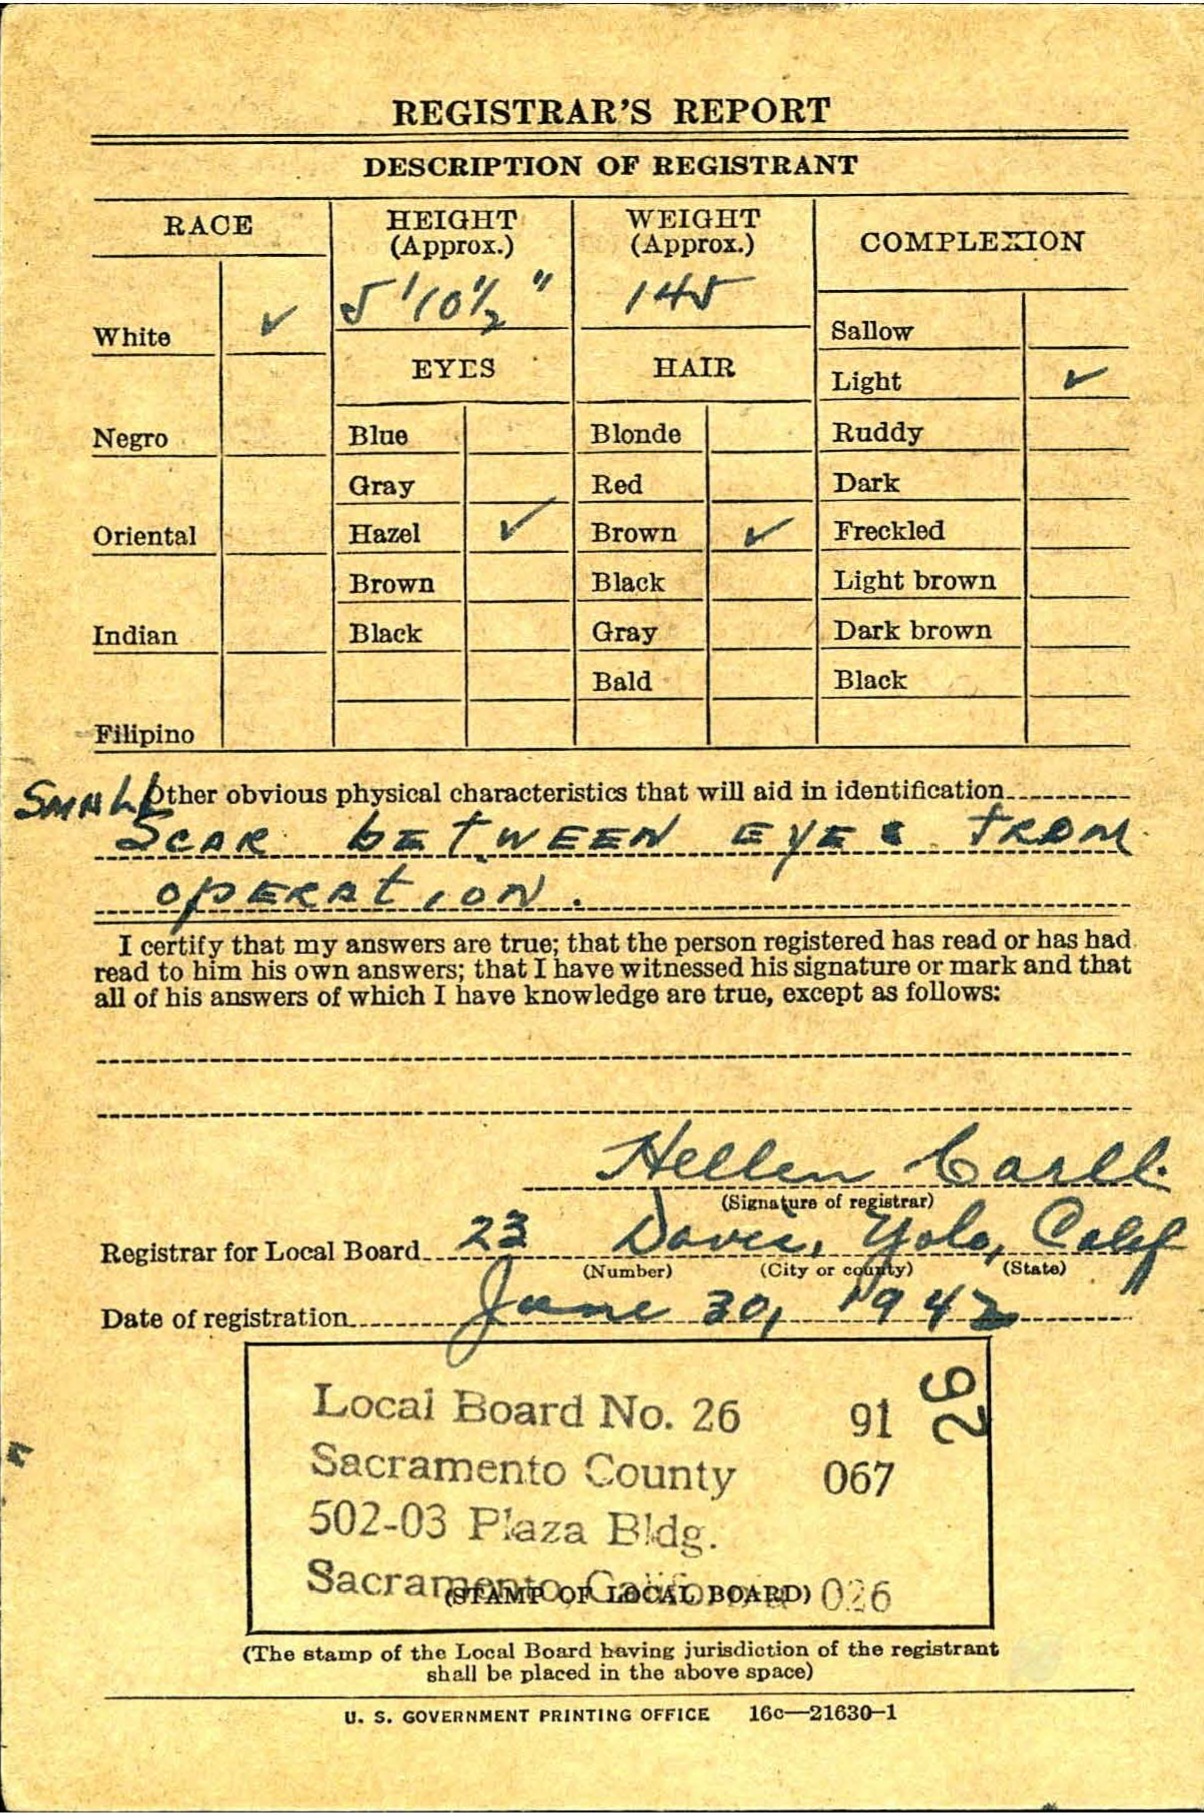 REGISTRAR'S REPORT
DESCRIPTION OF REGISTRANT
RACE
HEIGHT
(Approx.)
WEIGHT
(Approx.)
COMPLEXION
5'10½"
145
White ✓
Sallow
EYES
HAIR
Light ✓
Negro
Blue
Blonde
Ruddy
Gray
Red
Dark
Oriental
Hazel ✓
Brown ✓
Freckled
Brown
Black
Light brown
Indian
Black
Gray
Dark brown
Bald
Black
Filipino
Other obvious physical characteristics that will aid in identification
SMALL
SCAR BETWEEN EYES FROM
OPERATION.
I certify that my answers are true; that the person registered has read or has had
read to him his own answers; that I have witnessed his signature or mark and that
all of his answers of which I have knowledge are true, except as follows:
Hellen Carll.
(Signature of registrar)
Registrar for Local Board 23 Davis, Yolo, Calif
(Number) (City or county) (State)
Date of registration June 30, 1942
Local Board No. 26 91
26
Sacramento County 067
502-03 Plaza Bldg.
Sacramento, California 026
(STAMP OF LOCAL BOARD)
(The stamp of the Local Board having jurisdiction of the registrant
shall be placed in the above space)
U. S. GOVERNMENT PRINTING OFFICE 16c—21630-1